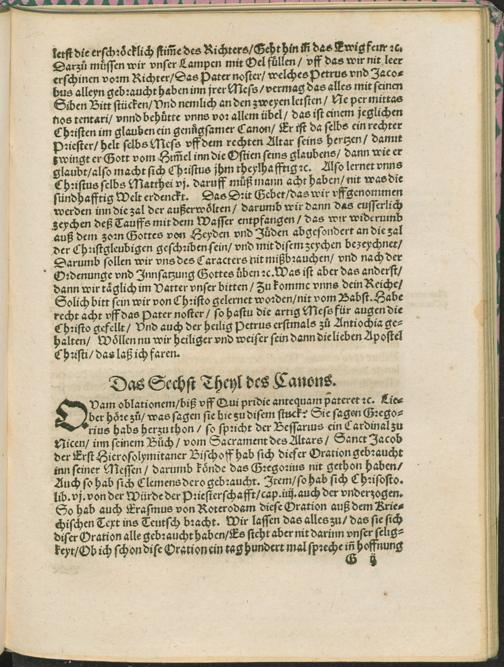 letst die erschröcklich stim̃e des Richters/Geht hin iñ das Ewig feur ꝛc.
Darzů müssen wir vnser Lampen mit Oel füllen/ vff das wir nit leer
erschinen vorm Richter/Das Pater noster/ welches Petrus vnd Jaco-
bus alleyn gebraucht haben inn jrer Mess/ vermag das alles mit seinen
Siben Bitt stücken/Vnd nemlich an den zweyen letsten/ Ne permittas
nos tentari/ vnnd behütte vnns vor allem übel/ das ist einem jeglichen
Christen im glauben ein genůgsamer Canon/ Er ist da selbs ein rechter
Priester/ helt selbs Mess vff dem rechten Altar seins hertzen/ damit
zwinget er Gott vom Him̃el inn die Ostien seins glaubens/ dann wie er
glaubt/also macht sich Christus jhm theylhafftig ꝛc. Also lernet vnns
Christus selbs Matthei vj. daruff můß mann acht haben/ nit was die
sündhafftig Welt erdenckt. Das Drit Gebet/das wir vffgenommen
werden inn die zal der außerwölten/ darumb wir dann das eusserlich
zeychen deß Tauffs mit dem Wasser entpfangen/ das wir widerumb
auß dem zorn Gottes von Heyden vnd Jüden abgesondert an die zal
der Christgleubigen geschriben sein/ vnd mit disem zeychen bezeychnet/
Darumb sollen wir vns des Caracters nit mißbrauchen/ vnd nach der
Ordenunge vnd Jnnsatzung Gottes üben ꝛc. Was ist aber das anderst/
dann wir täglich im Vatter vnser bitten/ Zů komme vnns dein Reiche/
Solich bitt sein wir von Christo gelernet worden/nit vom Babst. Habe
recht acht vff das Pater noster/ so hastu die artig Mess für augen die
Christo gefellt/ Vnd auch der heilig Petrus erstmals zů Antiochia ge-
halten/ Wöllen nu wir heiliger vnd weiser sein dann die lieben Apostel
Christi/ das laß ich faren.
Das Sechst Theyl des Canons.
QVam oblationem/biß vff Qui pridie antequam pateret ꝛc. Lie-
ber höre zů/ was sagen sie hie zu disem stuck? Sie sagen Grego-
rius habs herzu thon/ so spricht der Bessarius ein Cardinal zu
Nicen/ im seinem Bůch/ vom Sacrament des Altars/ Sanct Jacob
der Erst Hierosolymitaner Bischoff hab sich dieser Oration gebraucht
inn seiner Messen/ darumb könde das Gregorius nit gethon haben/
Auch so hab sich Clemens dero gebraucht. Jtem/so hab sich Chrisosto.
lib. vj. von der Würde der Priesterschafft/cap. iiij. auch der vnderzogen.
So hab auch Erasmus von Roterodam diese Oration auß dem Krie-
chischen Text ins Teutsch bracht. Wir lassen das alles zu/ das sie sich
diser Oration alle gebraucht haben/Es steht aber nit darinn vnser selig-
keyt/Ob ich schon dise Oration ein tag hundert mal spreche iñ hoffnung
G ij